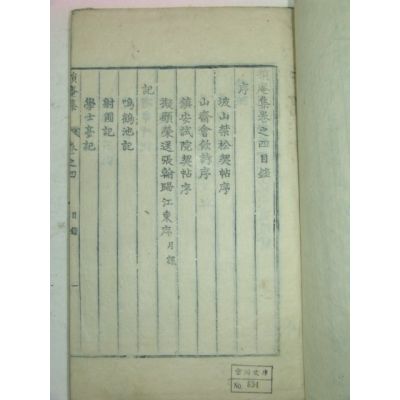 庵集卷之四目錄
序
坡山禁松契帖序
山齋會飮詩序
鎭安試院契帖序
擬顧榮送張翰歸江東序 月課
記
鳴鶴池記
射圃記
學士亭記
庵集 卷之四 目錄 一
No. 834